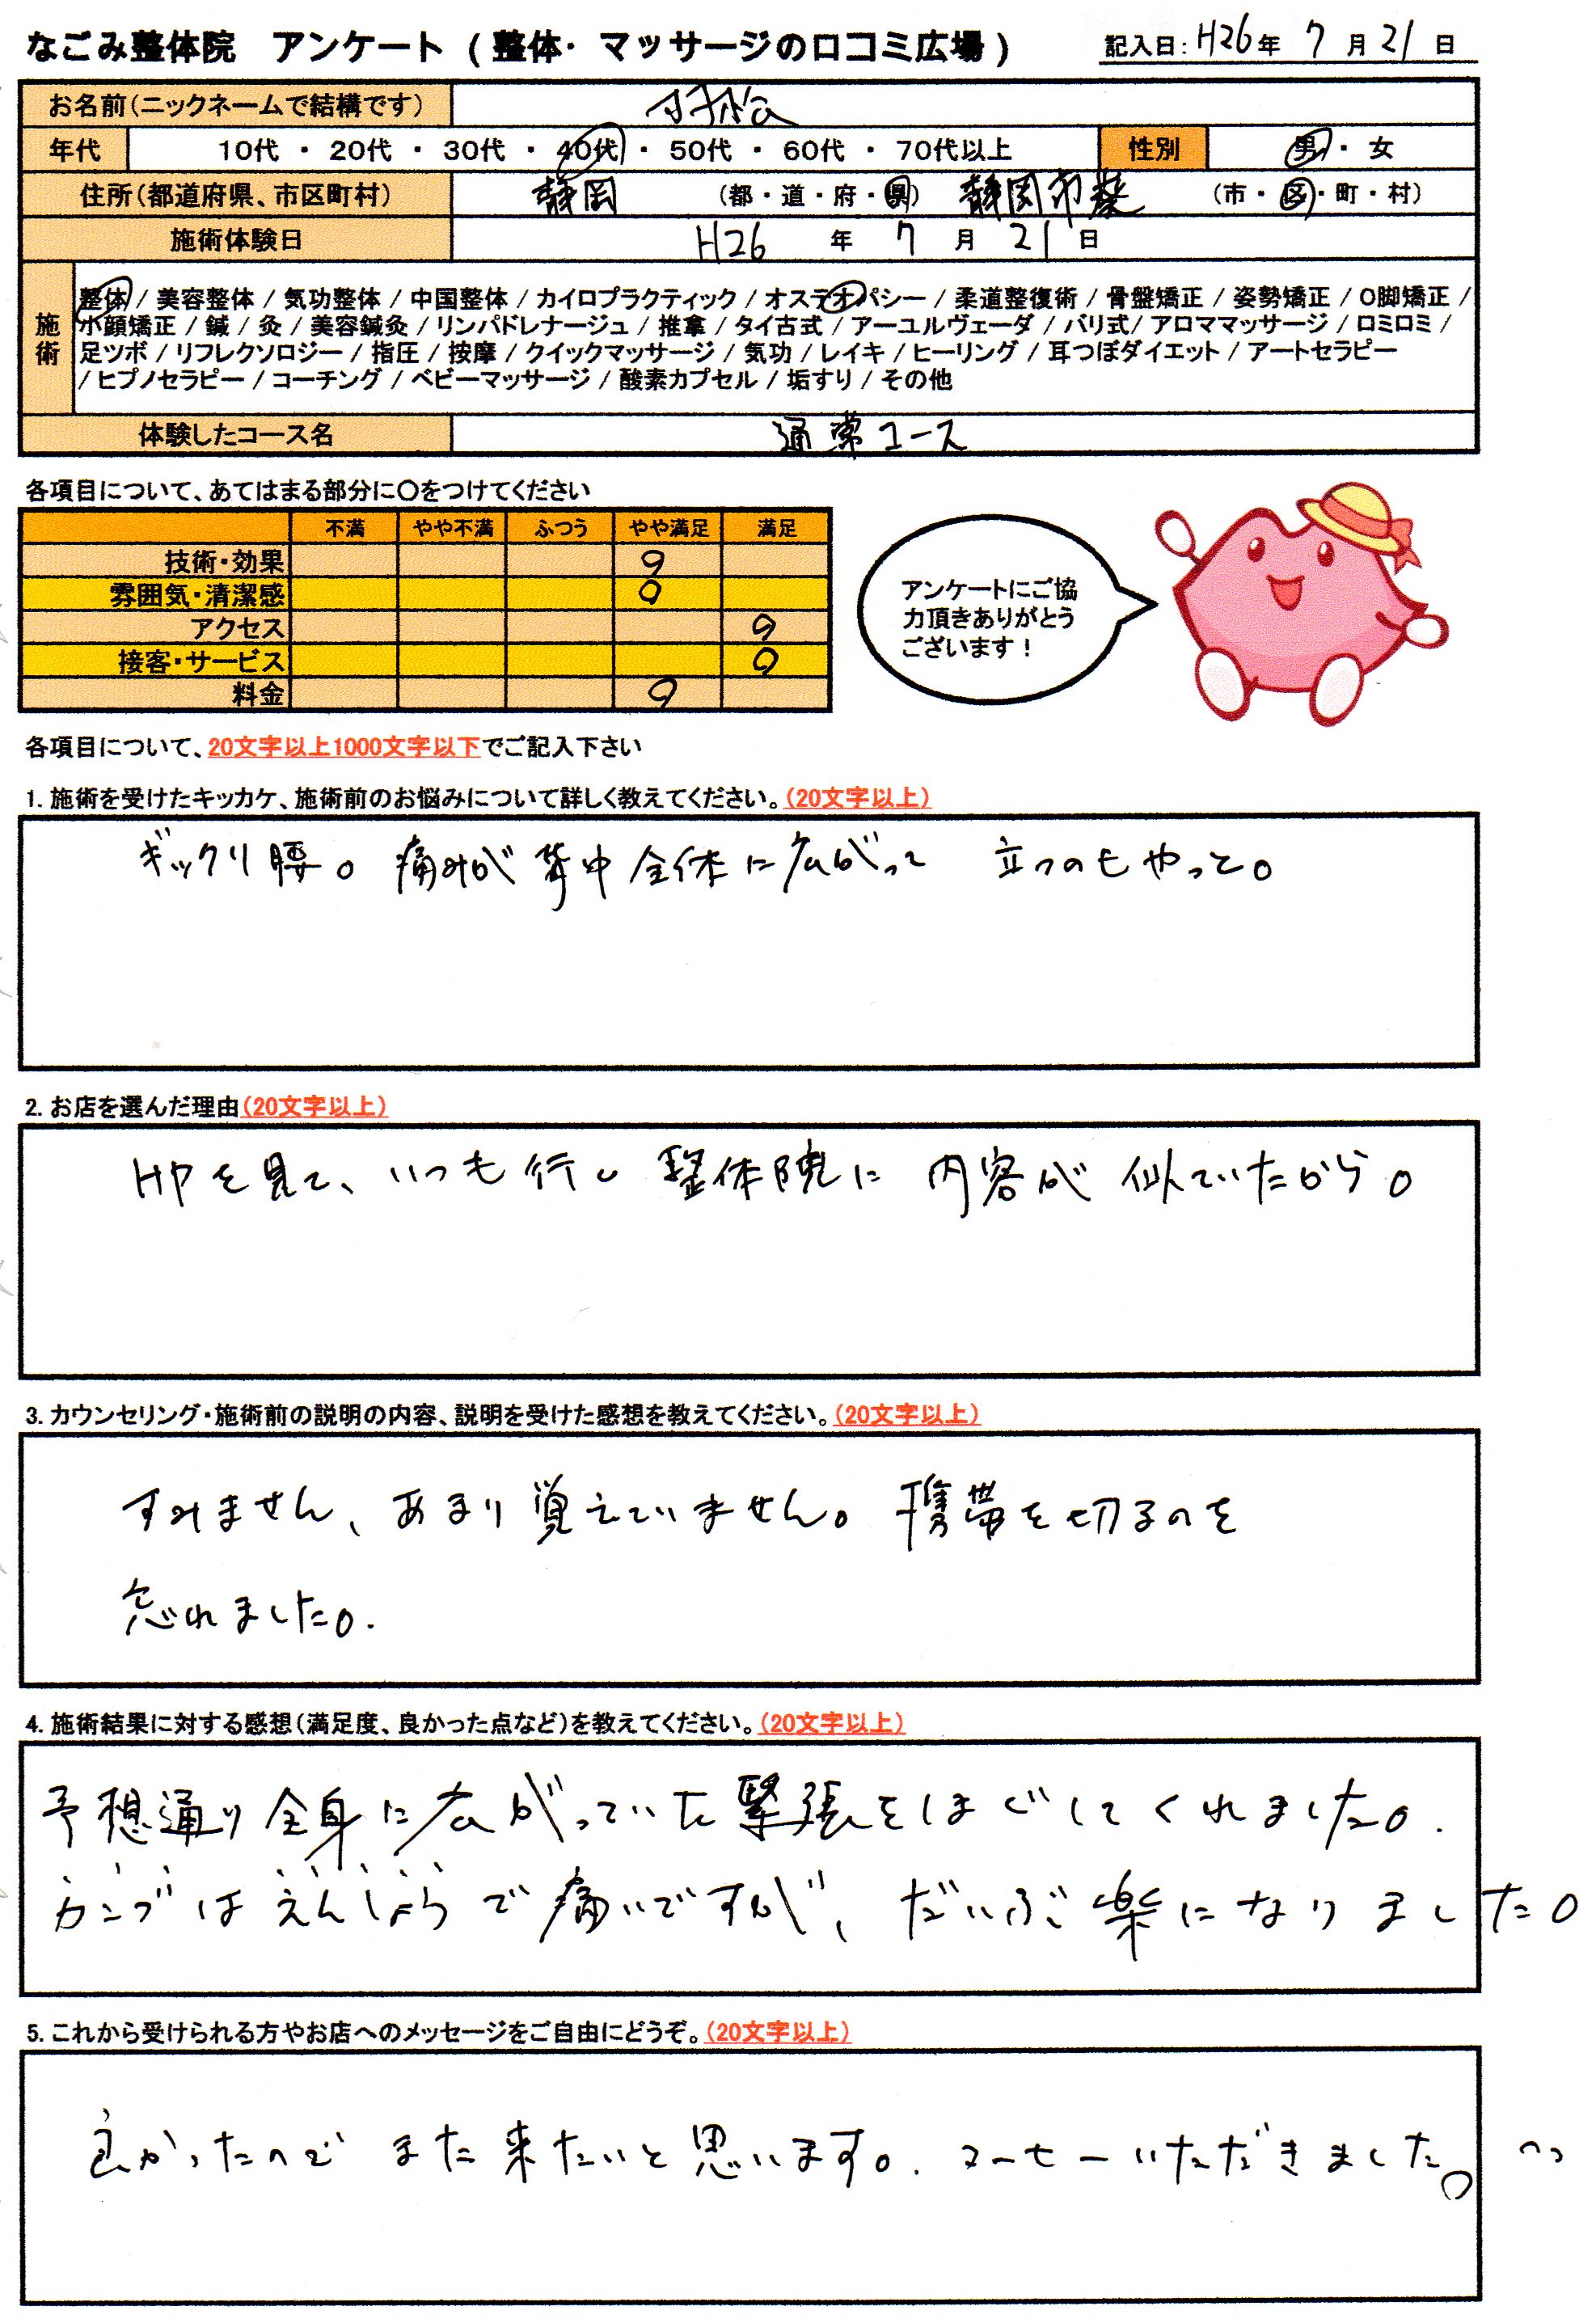 なごみ整体院 アンケート (整体・マッサージの口コミ広場)
記入日: H26年 7月21日
お名前(ニックネームで結構です)
年代 10代 ・ 20代 ・ 30代 ・ 40代 ・ 50代 ・ 60代 ・ 70代以上 性別 男・女
住所(都道府県、市区町村) 静岡 (都・道・府・県) 静岡市葵 (市・区・町・村)
施術体験日 H26 年 7 月 21日
施術
整体 / 美容整体 / 気功整体 / 中国整体 / カイロプラクティック / オステオパシー / 柔道整復術 / 骨盤矯正 / 姿勢矯正 / O脚矯正 /
小顔矯正 / 鍼 / 灸 / 美容鍼灸 / リンパドレナージュ / 推拿 / タイ古式 / アーユルヴェーダ / バリ式 / アロママッサージ / ロミロミ /
足ツボ / リフレクソロジー / 指圧 / 按摩 / クイックマッサージ / 気功 / レイキ / ヒーリング / 耳つぼダイエット / アートセラピー
/ ヒプノセラピー / コーチング / ベビーマッサージ / 酸素カプセル / 垢すり / その他
体験したコース名 通常コース
各項目について、あてはまる部分に○をつけてください
不満 やや不満 ふつう やや満足 満足
技術・効果
雰囲気・清潔感
アクセス
接客・サービス
料金
アンケートにご協
力頂きありがとう
ございます!
各項目について、20文字以上1000文字以下でご記入下さい
1. 施術を受けたキッカケ、施術前のお悩みについて詳しく教えてください。(20文字以上)
ギックリ腰。痛みが背中全体に広がって 立つのもやっと。
2. お店を選んだ理由(20文字以上)
HPを見て、いつも行く整体院に内容が似ていたから。
3. カウンセリング・施術前の説明の内容、説明を受けた感想を教えてください。(20文字以上)
すみません、あまり覚えていません。携帯を切るのを
忘れました。
4. 施術結果に対する感想(満足度、良かった点など)を教えてください。(20文字以上)
予想通り全身に広がっていた緊張をほぐしてくれました。
カンブはえんしょうで痛いですが、だいぶ楽になりました。
5. これから受けられる方やお店へのメッセージをご自由にどうぞ。(20文字以上)
良かったのでまた来たいと思います。コーヒーいただきました。